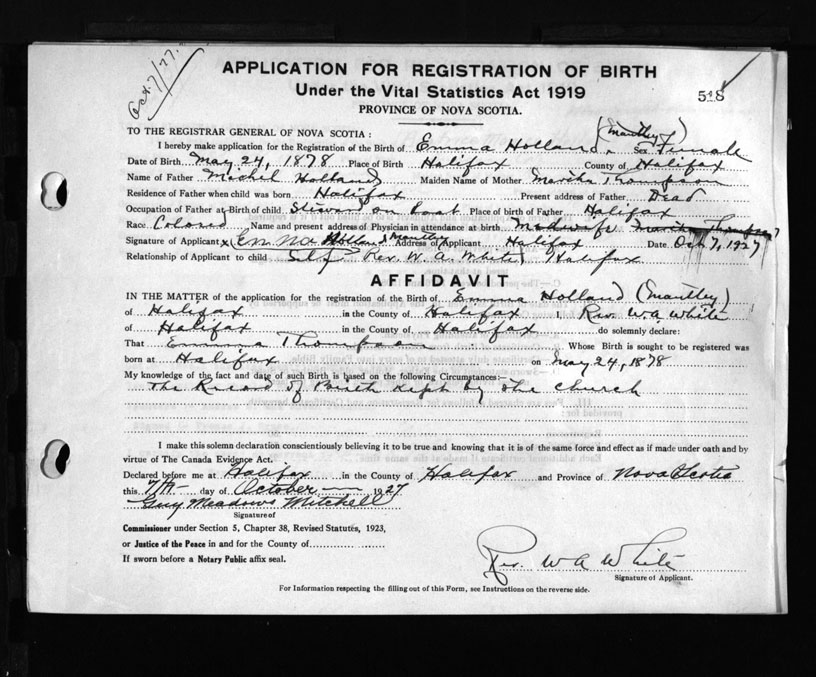 Oct. 7/27.
APPLICATION FOR REGISTRATION OF BIRTH
Under the Vital Statistics Act 1919
548
PROVINCE OF NOVA SCOTIA.
TO THE REGISTRAR GENERAL OF NOVA SCOTIA :
(Mantley)
I hereby make application for the Registration of the Birth of Emma Holland. Sex Female
Date of Birth May 24, 1878 Place of Birth Halifax County of Halifax
Name of Father Michel Holland Maiden Name of Mother Martha Thompson
Residence of Father when child was born Halifax Present address of Father Dead
Occupation of Father at Birth of child Steward on boat Place of birth of Father Halifax
Race Colored Name and present address of Physician in attendance at birth Midwife Martha Thompson
Signature of Applicant x Emma Holland Mantley Address of Applicant Halifax Date Oct 7, 1927
Relationship of Applicant to child Self Rev. W. A. White, Halifax
AFFIDAVIT
IN THE MATTER of the application for the registration of the Birth of Emma Holland (Mantley)
of Halifax in the County of Halifax I, Rev. W. A. White
of Halifax in the County of Halifax do solemnly declare:
That Emma Thompson Whose Birth is sought to be registered was
born at Halifax on May 24, 1878
My knowledge of the fact and date of such Birth is based on the following Circumstances:—
The Record of Birth kept by the church
I make this solemn declaration conscientiously believing it to be true and knowing that it is of the same force and effect as if made under oath and by
virtue of The Canada Evidence Act.
Declared before me at Halifax in the County of Halifax and Province of Nova Scotia
this 7th day of October 1927
Guy Meadows Mitchell
Signature of
Commissioner under Section 5, Chapter 38, Revised Statutes, 1923,
or Justice of the Peace in and for the County of
If sworn before a Notary Public affix seal.
Rev. W A White
Signature of Applicant.
For Information respecting the filling out of this Form, see Instructions on the reverse side.